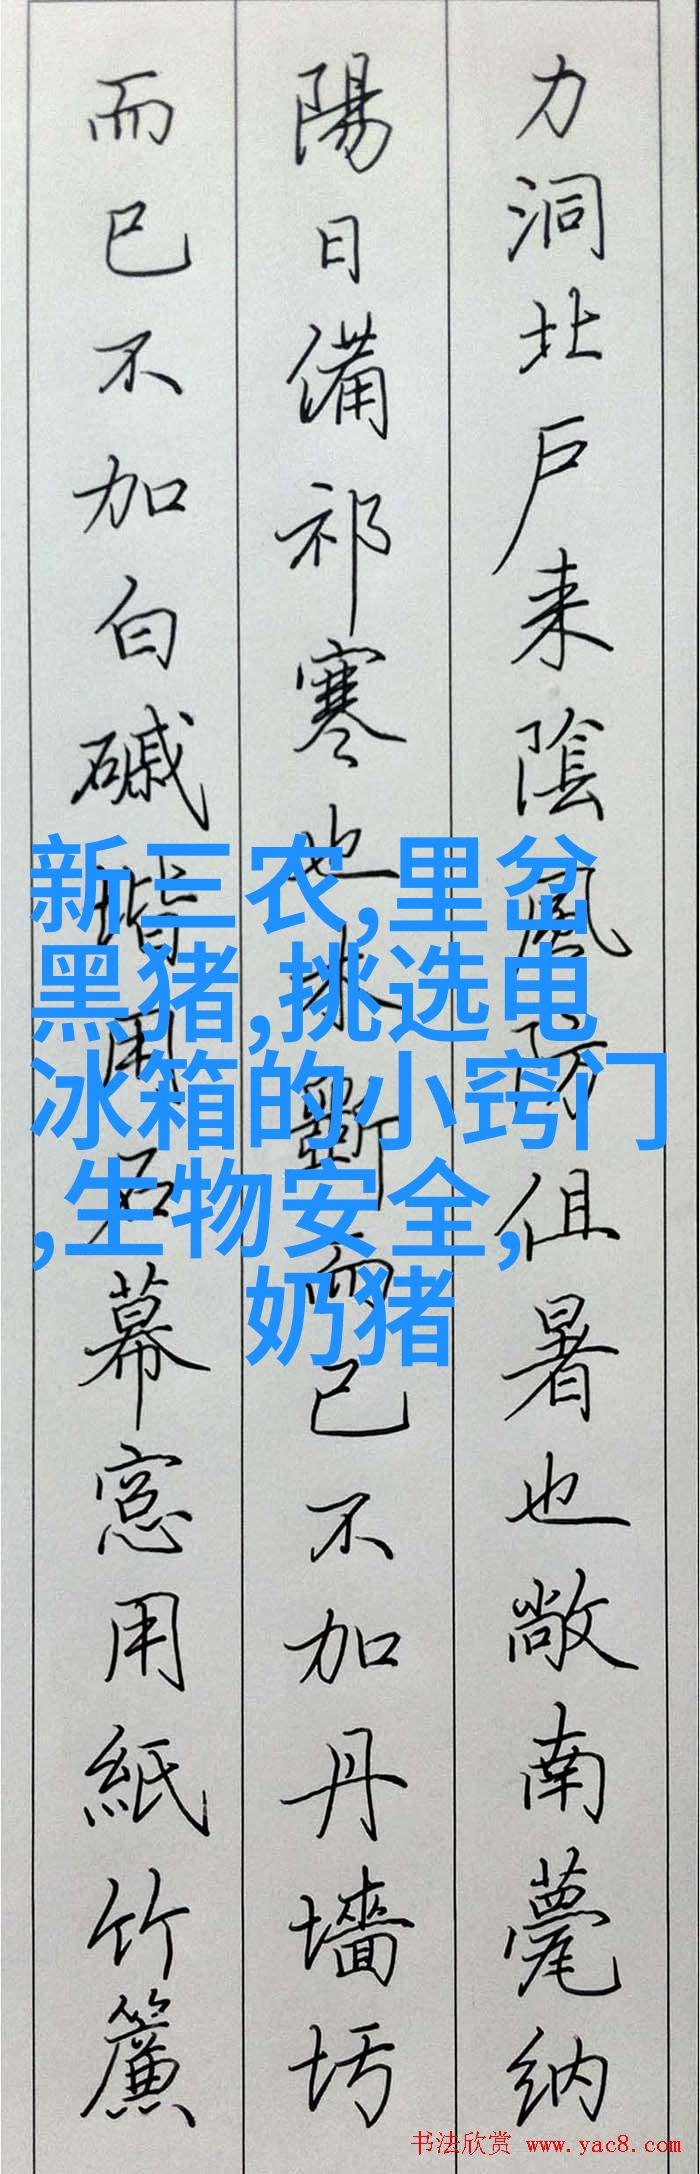 力洞北戸来陰風防徂暑也敞南甍纳
陽日備祁寒也木斲而已不加丹墻圬
而已不加白磩堦用石幕窓用紙竹簾
新三农,里岔
黑猪,挑选电
冰箱的小窍门
,生物安全,
奶猪
书法欣赏 www.yac8.com